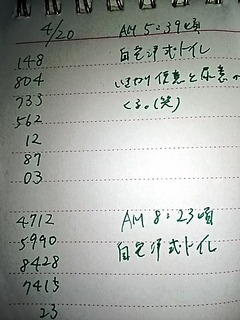 4/20 AM 5:39頃
148 自宅洋式トイレ
804 いきなり便意と尿意
733 くる。(笑)
562
12
87
03
4712 AM 8:23頃
5990 自宅洋式トイレ
8428
7415
23